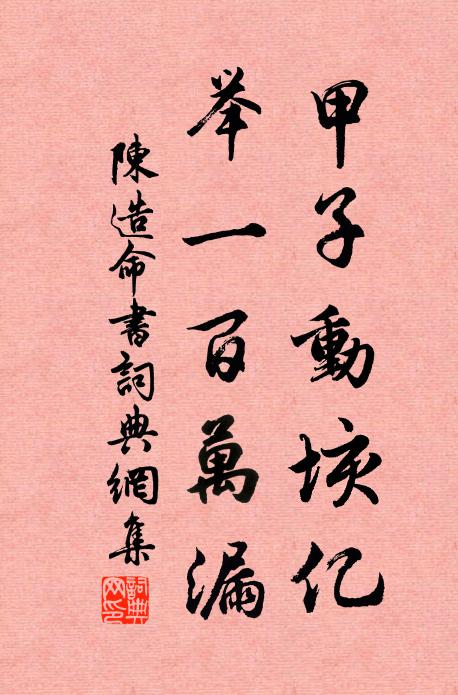 甲子動垓亿
举一百萬漏
陳造命書詞典網集
詞典网印